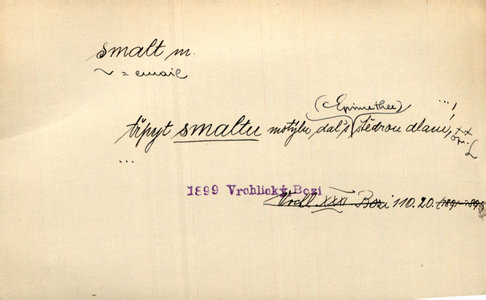 smalt m.
~ = email
(Epimethee) ...,
třpyt smaltu motýlu dal's štědrou dlaní,
...
1899 Vrchlický Bozi
Vrchl. XXXI Bozi 110.20.